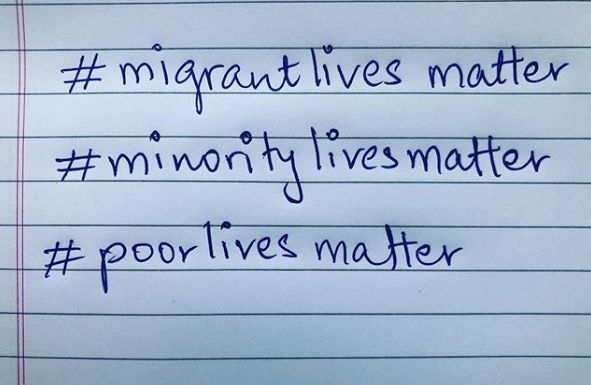 # migrant lives matter
# minority lives matter
# poor lives matter